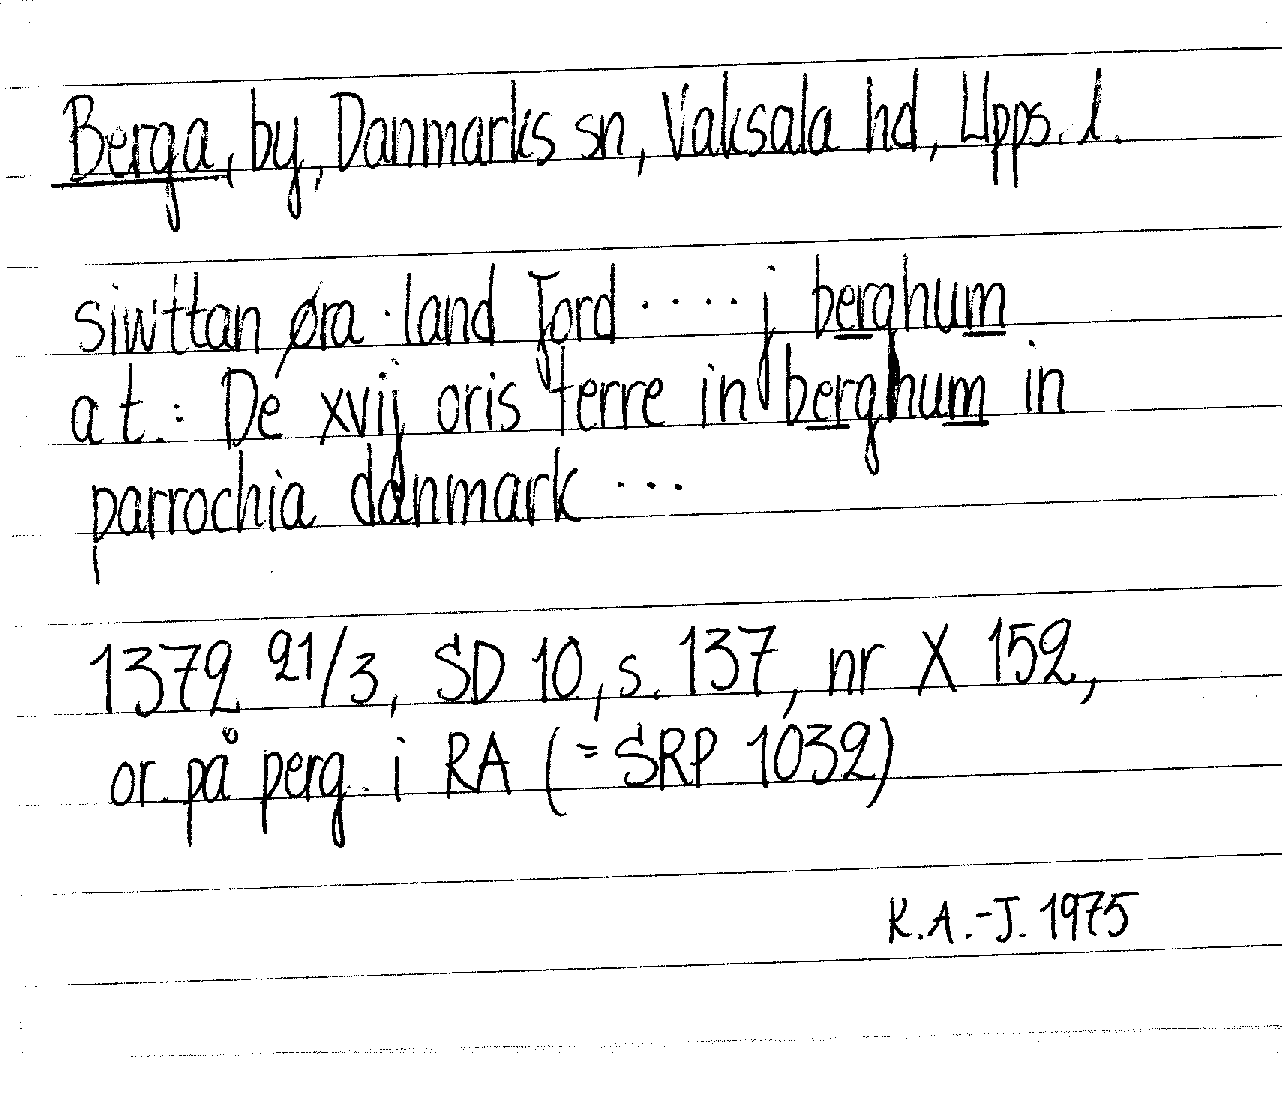 Berga, by, Danmarks sn, Vaksala hd, Upps. l.
siwttan øra land Jord ..... j berghum
a t.: De xvij oris terre in berghum in
parrochia danmark ...
1379 21/3, SD 10, s. 137, nr X 152,
or. på perg. i RA (= SRP 1032)
K.A.-J. 1975